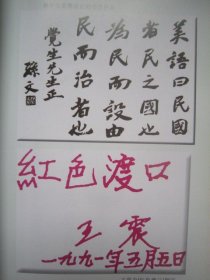 美語曰民國
者民之國也
為民而設由
民而治者也
覺生先生正
孫文
紅色渡口
王震
一九九一年五月五日